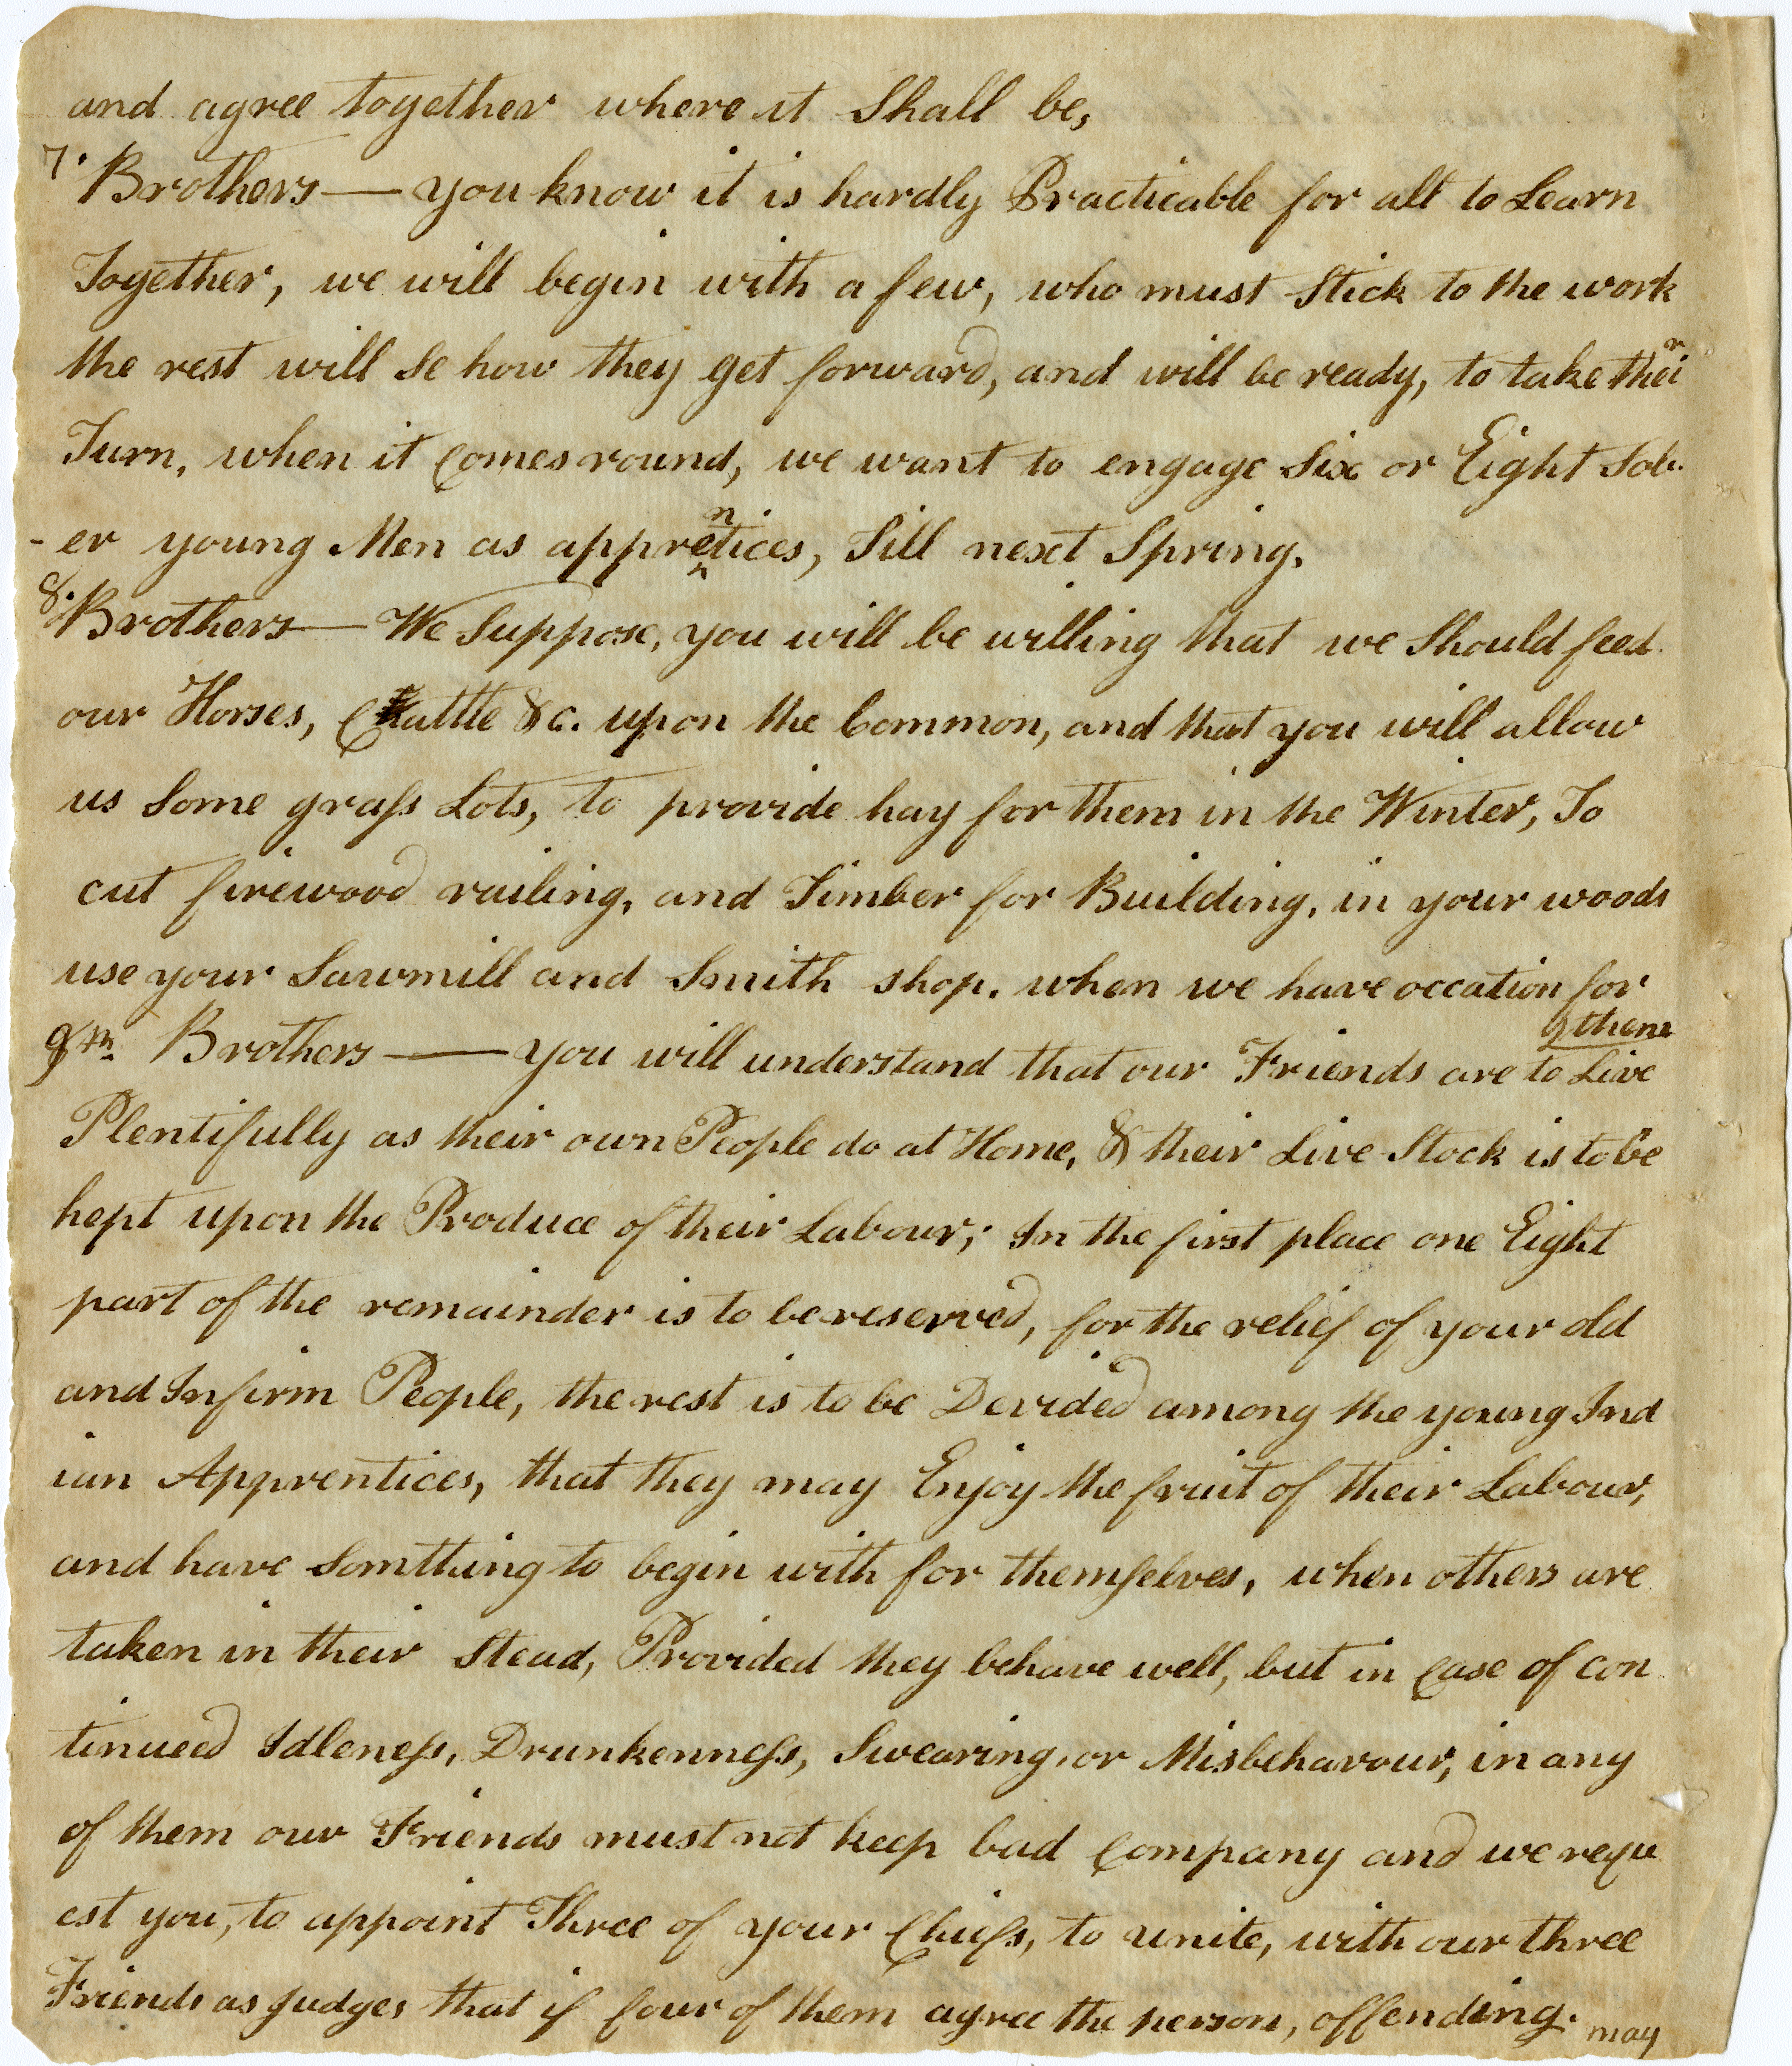 and agree together where it Shall be,
7. Brothers — you know it is hardly Practicable for all to Learn
Together, we will begin with a few, who must Stick to the work
the rest will Se how they get forward, and will be ready, to take their
Turn, when it Comes round, we want to engage Six or Eight Sob-
-er young Men as apprentices, Till next Spring.
8. Brothers — We Suppose, you will be willing that we Should feed
our Horses, Cattle &c. upon the Common, and that you will allow
us Some grass Lots, to provide hay for them in the Winter, To
cut firewood railing, and Timber for Building, in your woods
use your Sawmill and Smith shop. when we have occation for
them
9th. Brothers — you will understand that our Friends are to Live
Plentifully as their own People do at Home, & their Live Stock is to be
kept upon the Produce of their Labour; In the first place one Eight
part of the remainder is to be reserved, for the relief of your old
and Infirm People, the rest is to be Devided among the young Ind
ian Apprentices, that they may Enjoy the fruit of their Labour,
and have Somtthing to begin with for themselves, when others are
taken in their Stead, Provided they behave well, but in Case of con
tinueed Idleness, Drunkenness, Swearing, or Misbehavour, in any
of them our Friends must not keep bad Company and we requ
est you, to appoint Three of your Chiefs, to unite, with our three
Friends as Judges that if four of them agree the person, offending. may